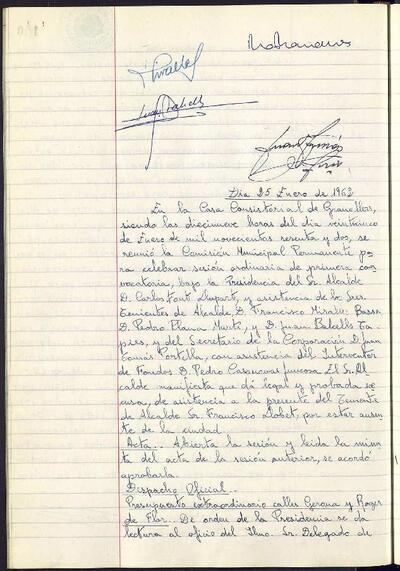 Dia 25 Enero de 1962
En la Casa Consistorial de Granollers,
siendo las diecinueve horas del dia veinticinco
de Enero de mil novecientos sesenta y dos, se
reunió la Comisión Municipal Permanente pa-
ra celebrar sesión ordinaria de primera con-
vocatoria, bajo la Presidencia del Sr. Alcalde
D. Carlos Font Llopart, y asistencia de los Sres.
Tenientes de Alcalde, D. Francisco Miralles Bassa
D. Pedro Plana Martí, y D. Juan Balcells Ta-
pies, y del Secretario de la Corporación D. Juan
Tomás Portilla, con asistencia del Interventor
de Fondos D. Pedro Casanovas. El Sr. Al-
calde manifiesta que da legal y probada es-
cusa, de asistencia a la presente del Teniente
de Alcalde Sr. Francisco Llobet, por estar ausen-
te de la ciudad.
Acta.. Abierta la sesión y leida la minu-
ta del acta de la sesión anterior, se acordó
aprobarla.
Despacho Oficial..
Presupuesto extraordinario calles Gerona y Roger
de Flor.. De orden de la Presidencia se da
lectura al oficio del Ilmo. Sr. Delegado de